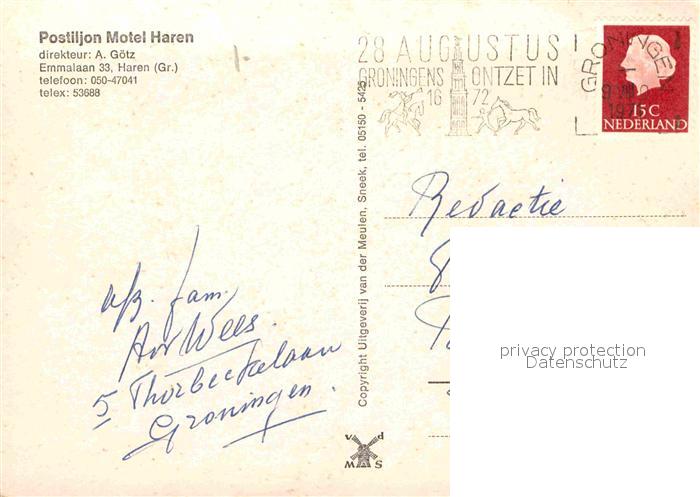 Postiljon Motel Haren
direkteur: A. Götz
Emmalaan 33, Haren (Gr.)
telefoon: 050-47041
telex: 53688
28 AUGUSTUS
GRONINGENS ONTZET IN
16 72
GRONINGEN
15 C
NEDERLAND
Copyright Uitgeverij van der Meulen, Sneek, tel. 05150 - 5425
Redactie
privacy protection
Datenschutz
afz. fam.
Wees.
5 Thorbeckelaan
Groningen.
v d
M S